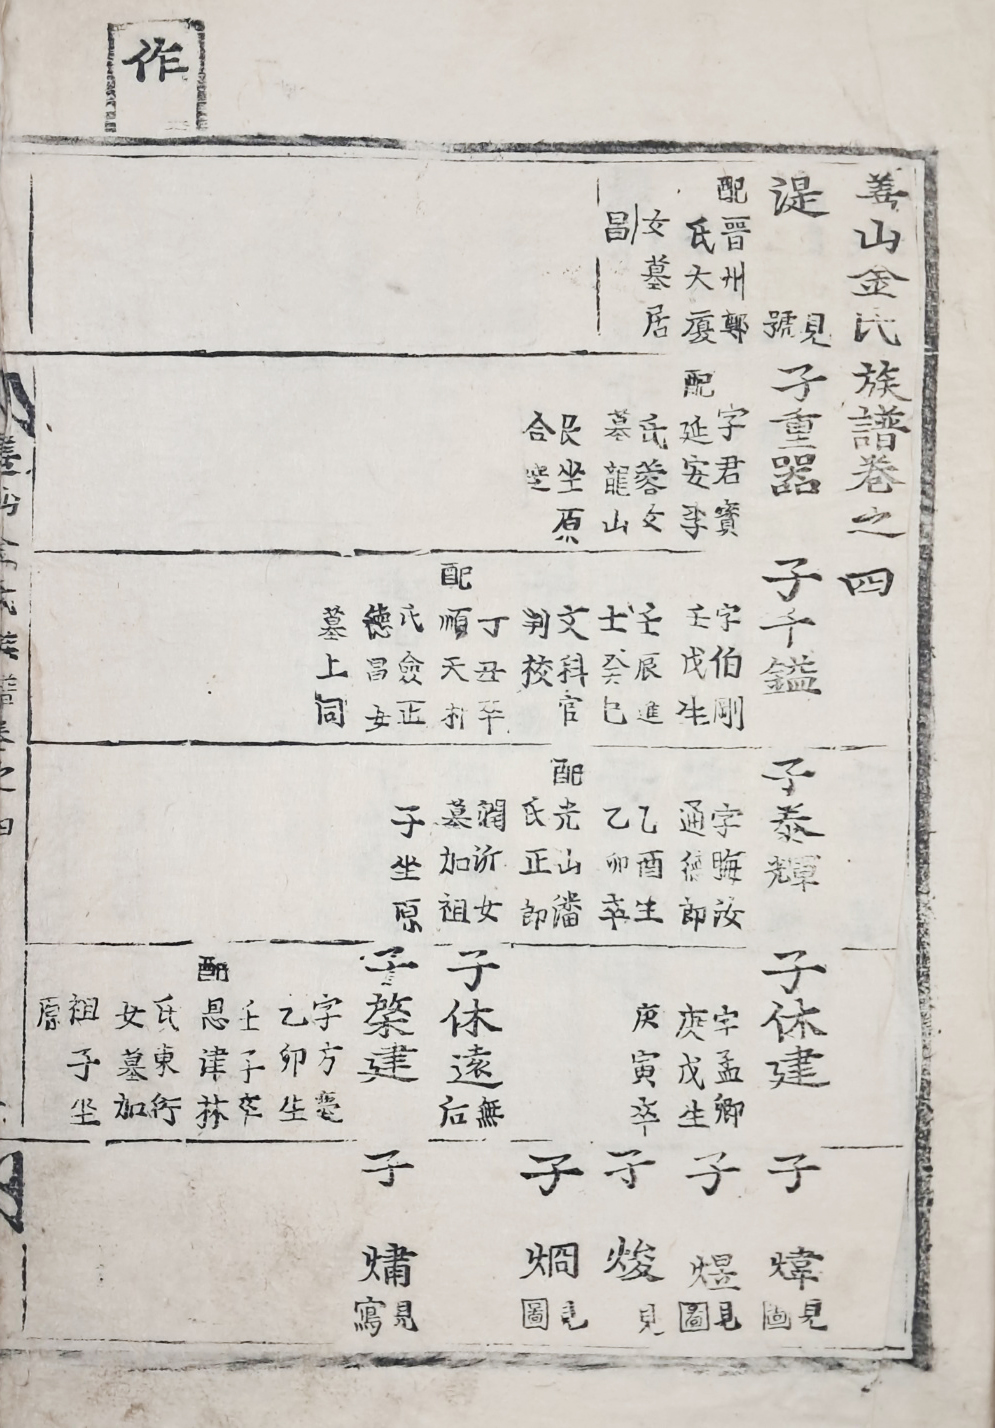 作
善山金氏族譜卷之四
湜
見
號
配晉州鄭
氏大廈
女墓居
昌
子重器
字君寶
配延安李
氏蓉女
墓龍山
艮坐原
合窆
子千鎰
字伯剛
壬戌生
壬辰進
士癸巳
文科官
判校
丁丑卒
配順天朴
氏僉正
德昌女
墓上同
子泰輝
字晦汝
通德郎
乙酉生
乙卯卒
配光山潘
氏正郎
潤沂女
墓加祖
子坐原
子休建
字孟卿
庚戌生
庚寅卒
子休遠
無
后
子棨建
字方甕
乙卯生
壬子卒
配恩津林
氏東衍
女墓加
祖子坐
原
子煒
見
圖
子煜
見
圖
子焌
見
子炯
見
圖
子熽
見
寫
善山金氏族譜卷之四